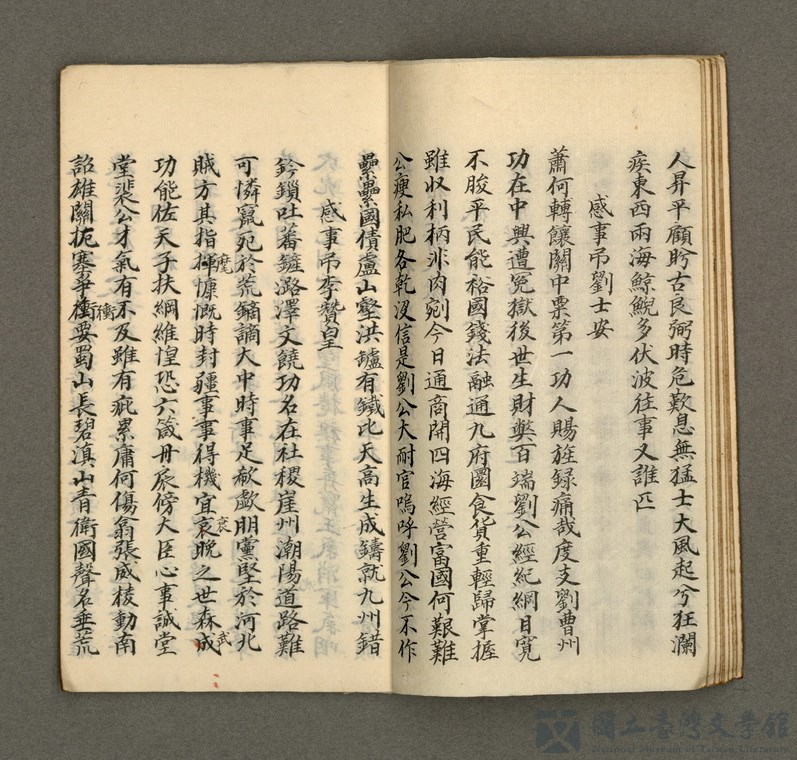 人昇平顧盻古良弼時危歎息無猛士大風起兮狂瀾
疾東西兩海鯨鯢多伏波往事又誰匹
感事弔劉士安
蕭何轉饟關中票第一功人賜旌録痛哉度支劉曹州
功在中興遭冤獄後世生財弊百端劉公經紀綱目寬
不朘平民能裕國錢法融通九府圜食貨重輕歸掌握
雖収利柄非肉剜今日通商開四海經營富國何艱難
公瘦私肥各乾沒信是劉公大耐官嗚呼劉公今不作
纍纍國債盧山壑洪鑪有鐵比天高生成鑄就九州錯
感事弔李贊皇
鈐鎖吐蕃鏟潞澤文饒功名在社稷崖州潮陽道路難
可憐竄死於荒鏑謫大中時事足欷歔朋黨堅於河北
賊方其指揮慷慨時封疆事事得機宜哀晚之世森成
麾
衰
武
功能佐天子扶綱維惶恐六箴丹扆傍大臣心事誠堂
堂裴公才氣有不及雖有疵累庸何傷翕張威棱動南
詔雄關扼塞爭衝要蜀山長碧滇山青衛國聲名垂荒
衝
國立臺灣文學館
National Museum of Taiwan Literature